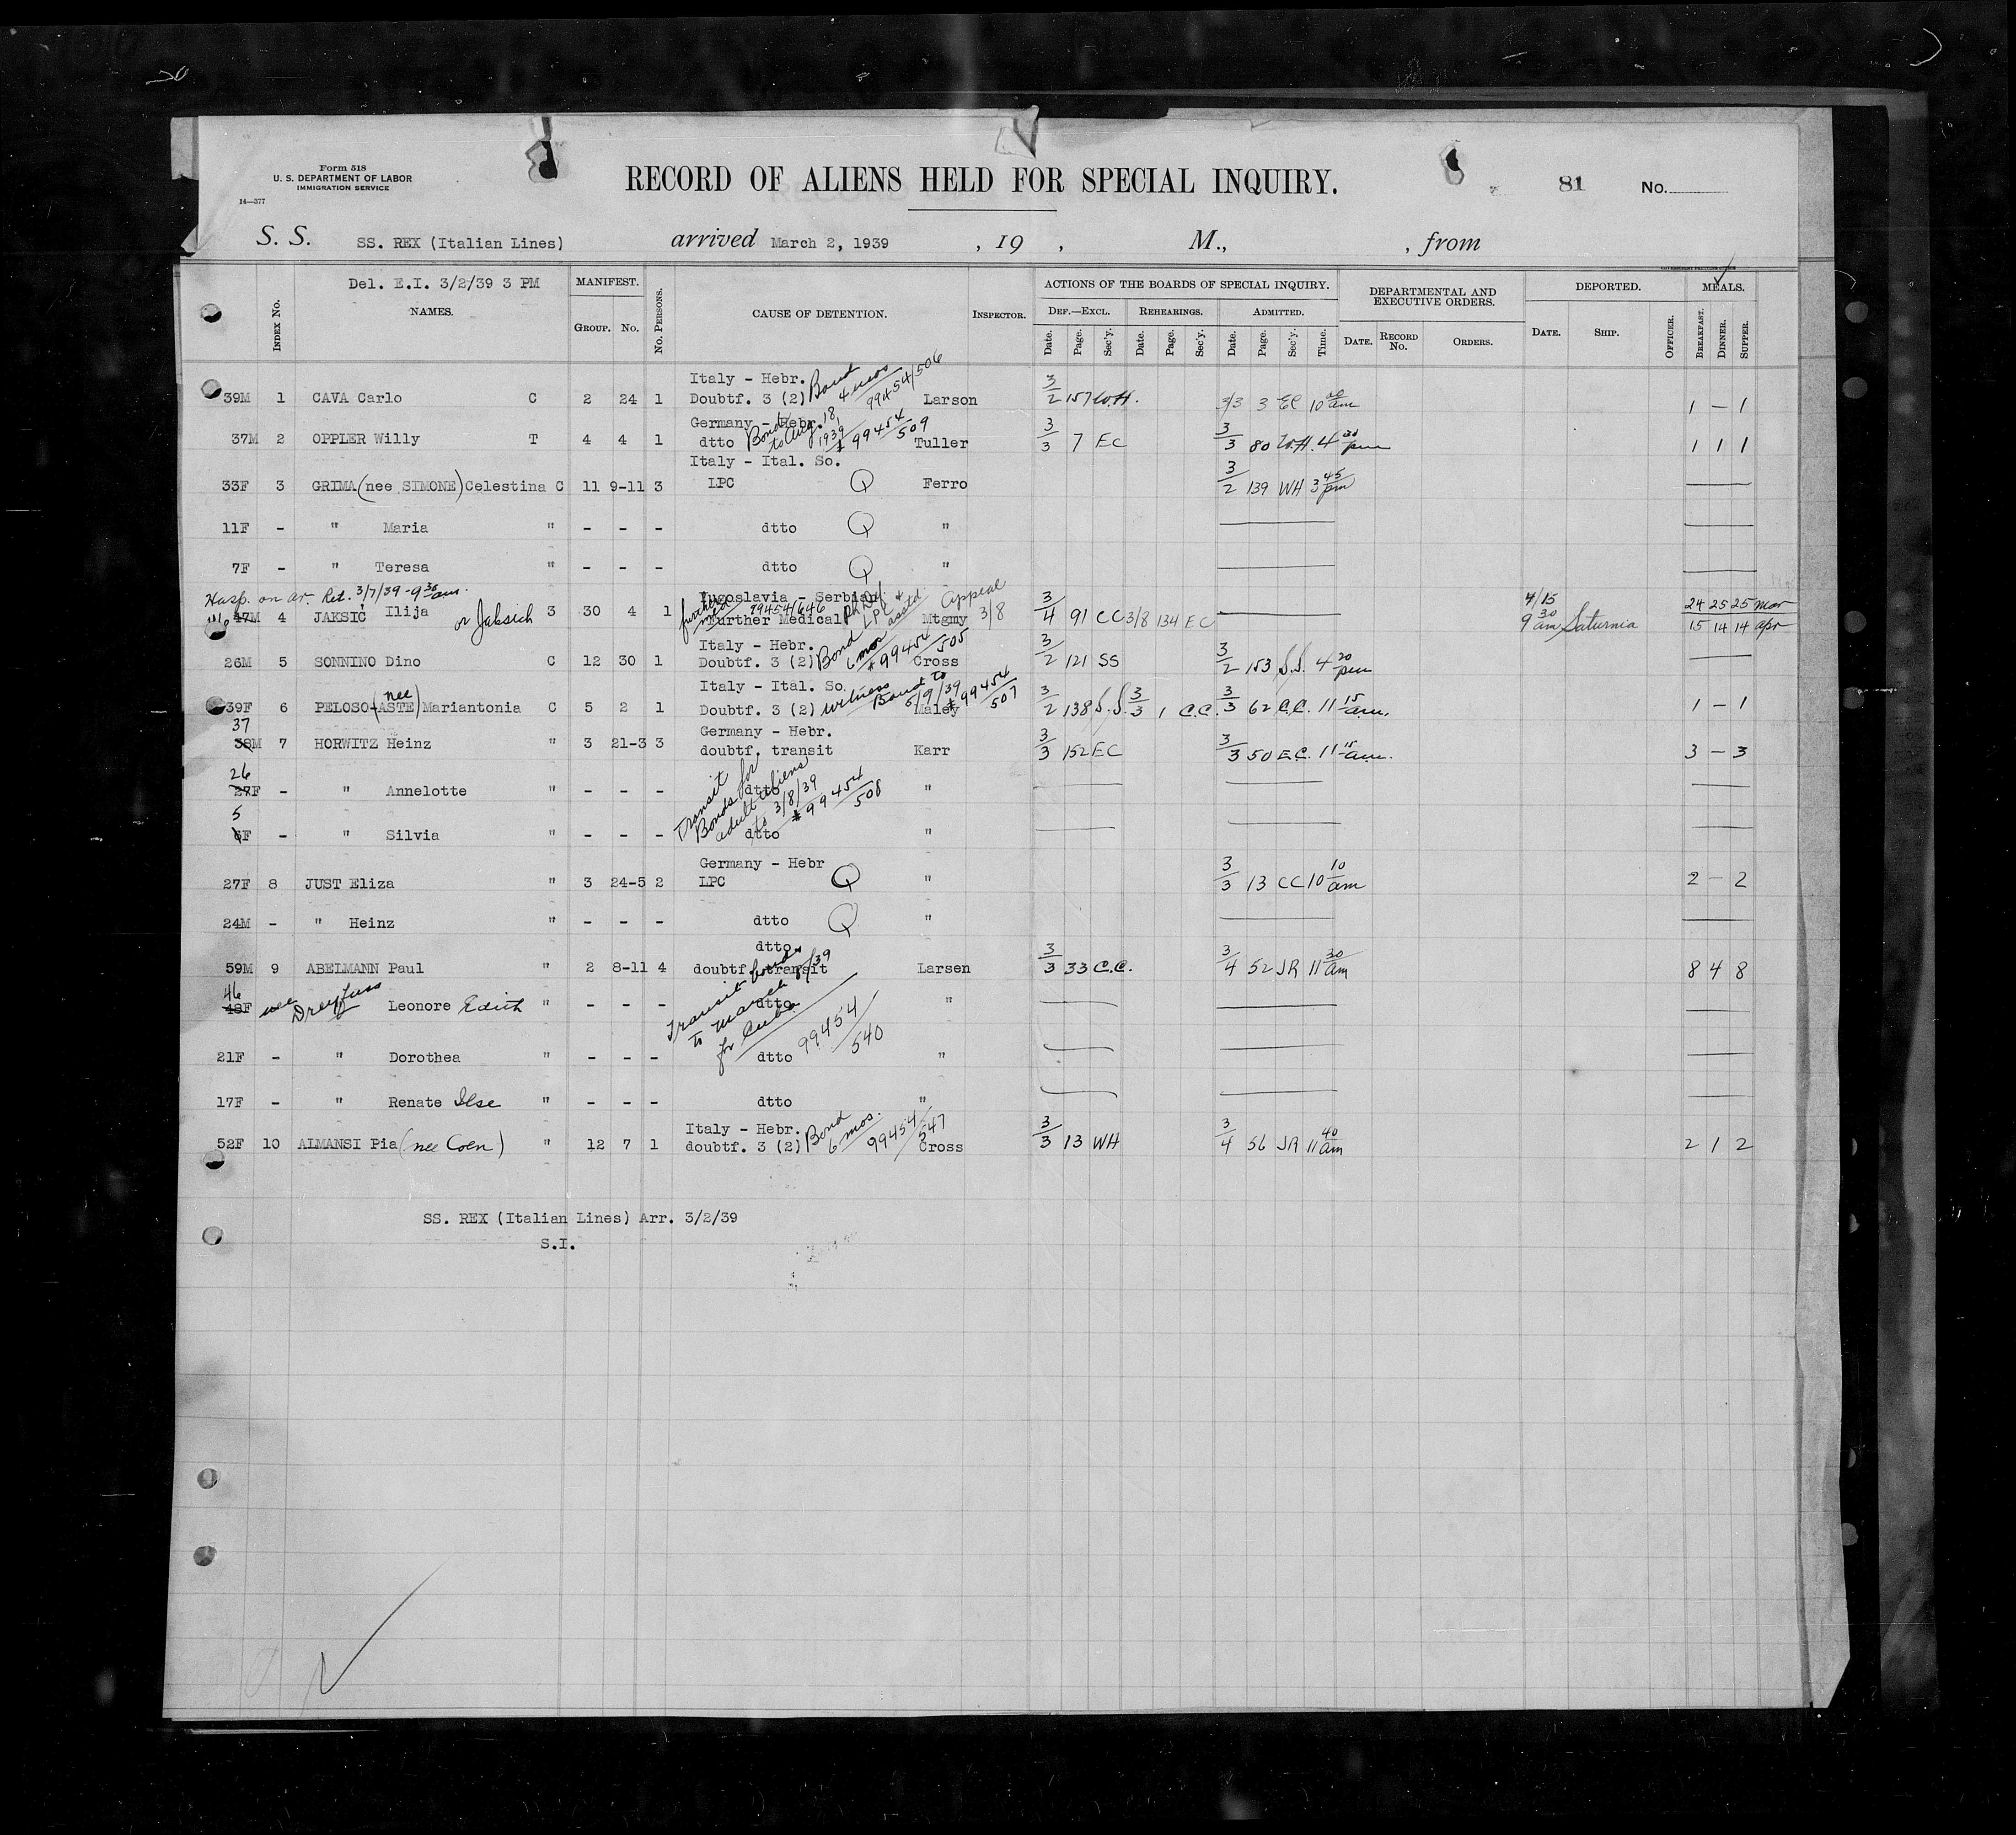 Form 518
U. S. DEPARTMENT OF LABOR
IMMIGRATION SERVICE
14—377
RECORD OF ALIENS HELD FOR SPECIAL INQUIRY.
81 No.
S. S. SS. REX (Italian Lines) arrived March 2, 1939 , 19 , M., , from
Del. E.I. 3/2/39 3 PM
INDEX No. NAMES. MANIFEST. GROUP. No. No. PERSONS. CAUSE OF DETENTION. INSPECTOR. ACTIONS OF THE BOARDS OF SPECIAL INQUIRY. DEF.—EXCL. Date. Page. Sec'y. REHEARINGS. Date. Page. Sec'y. ADMITTED. Date. Page. Sec'y. Time. DEPARTMENTAL AND EXECUTIVE ORDERS. DATE. RECORD No. ORDERS. DEPORTED. DATE. SHIP. OFFICER. MEALS. BREAKFAST. DINNER. SUPPER.
Italy - Hebr. Bond 4 mos 99454/506
39M 1 CAVA Carlo C 2 24 1 Doubtf. 3 (2) Larson 3/2 157 W.H. 3/3 3 EC 10 00 am 1 — 1
Germany - Hebr. Bond to Aug. 18, 1939 # 99454/509
37M 2 OPPLER Willy T 4 4 1 dtto Tuller 3/3 7 EC 3/3 80 W.H. 4 30 pm 1 1 1
Italy - Ital. So.
33F 3 GRIMA (nee SIMONE) Celestina C 11 9-11 3 LPC Q Ferro 3/2 139 WH 3 45 pm
11F - " Maria " - - - dtto Q "
7F - " Teresa " - - - dtto Q "
Hosp. on ar. Ret. 3/7/39 - 9 30 am.
Yugoslavia - Serbian further med 99454/646 LPC + Appeal
47M 4 JAKSIĆ Ilija or Jaksich 3 30 4 1 Further Medical Mtgmy 3/8 3/4 91 CC 3/8 134 EC 4/15 9 30 am Saturnia 24 25 25 Mar 15 14 14 apr
Italy - Hebr. Bond 6 mos # 99454/505
26M 5 SONNINO Dino C 12 30 1 Doubtf. 3 (2) Cross 3/2 121 SS 3/2 153 S.S. 4 20 pm
Italy - Ital. So. witness Bond to 5/9/39 # 99454/507
39F 6 PELOSO (nee ASTE) Mariantonia C 5 2 1 Doubtf. 3 (2) Maley 3/2 138 S.S. 3/3 1 C.C. 3/3 62 C.C. 11 15 am. 1 — 1
Germany - Hebr.
37 38M 7 HORWITZ Heinz " 3 21-3 3 doubtf. transit Karr 3/3 152 EC 3/3 50 E.C. 11 15 am. 3 — 3
26 27F - " Annelotte " - - - dtto "
Transit Bonds for adult aliens to 3/8/39 # 99454/508
5 6F - " Silvia " - - - dtto "
Germany - Hebr
27F 8 JUST Eliza " 3 24-5 2 LPC Q " 3/3 13 CC 10 10 am 2 — 2
24M - " Heinz " - - - dtto Q "
dtto
59M 9 ABELMANN Paul " 2 8-11 4 doubtf. transit Larsen 3/3 33 C.C. 3/4 52 JR 11 30 am 8 4 8
Transit bonds to March /39 for Cuba 99454/540
46 48F nee Dreyfuss Leonore Edith " - - - dtto "
21F - " Dorothea " - - - dtto "
17F - " Renate Ilse " - - - dtto "
Italy - Hebr. Bond 6 mos. 99454/547
52F 10 ALMANSI Pia (nee Coen) " 12 7 1 doubtf. 3 (2) Cross 3/3 13 WH 3/4 56 JR 11 40 am 2 1 2
SS. REX (Italian Lines) Arr. 3/2/39
S.I.